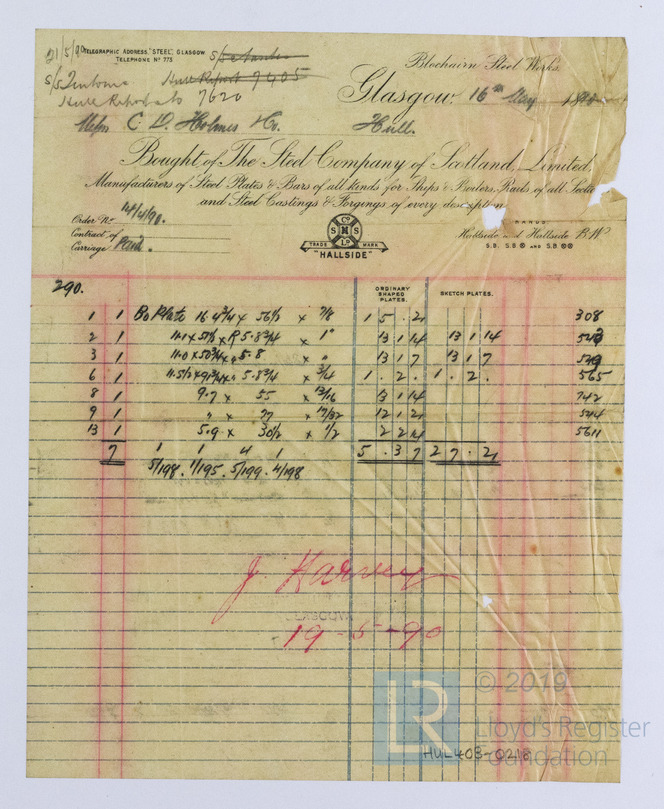 21/5/90 TELEGRAPHIC ADDRESS, "STEEL", GLASGOW.
TELEPHONE No 773
Blochairn Steel Works.
Hull Report 7405
Hull Report No 7620
Glasgow, 16th May 1890
Messrs C. D. Holmes & Co. Hull.
Bought of The Steel Company of Scotland, Limited,
Manufacturers of Steel Plates & Bars of all kinds for Ships & Boilers, Rails, of all Sectio
and Steel Castings & Forgings of every description
Order No 14/4/90.
Contract of
Carriage Paid.
S Co H S Ld
TRADE MARK
"HALLSIDE"
BRANDS
Hallside and Hallside B.W
S.B. S.B AND S.B
290.
ORDINARY SHAPED PLATES. SKETCH PLATES.
1 1 Bo Plate 16.4 3/4 x 56 1/2 x 7/8 15.2 308
2 1 11.1 x 51 1/2 x R 5.8 3/4 x 1" 13 14 13 14 543
3 1 11.0 x 50 3/4 x " 5.8 x " 13 17 13 17 549
6 1 11.5 1/2 x 91 3/4 x " 5.8 3/4 x 3/4 1.2. 1.2. 565
8 1 9.7 x 55 x 13/16 13 14 742
9 1 " x 77 x 17/32 12 12 544
13 1 5.9 x 30 1/2 x 1/2 2 24 5611
7 1 1 4 1 5.37 27.2
5/198. 1/195. 5/199. 4/198
J Harvey
GLASGOW
19-5-90
LR
© 2019
Lloyd's Register
Foundation
HUL403-0216